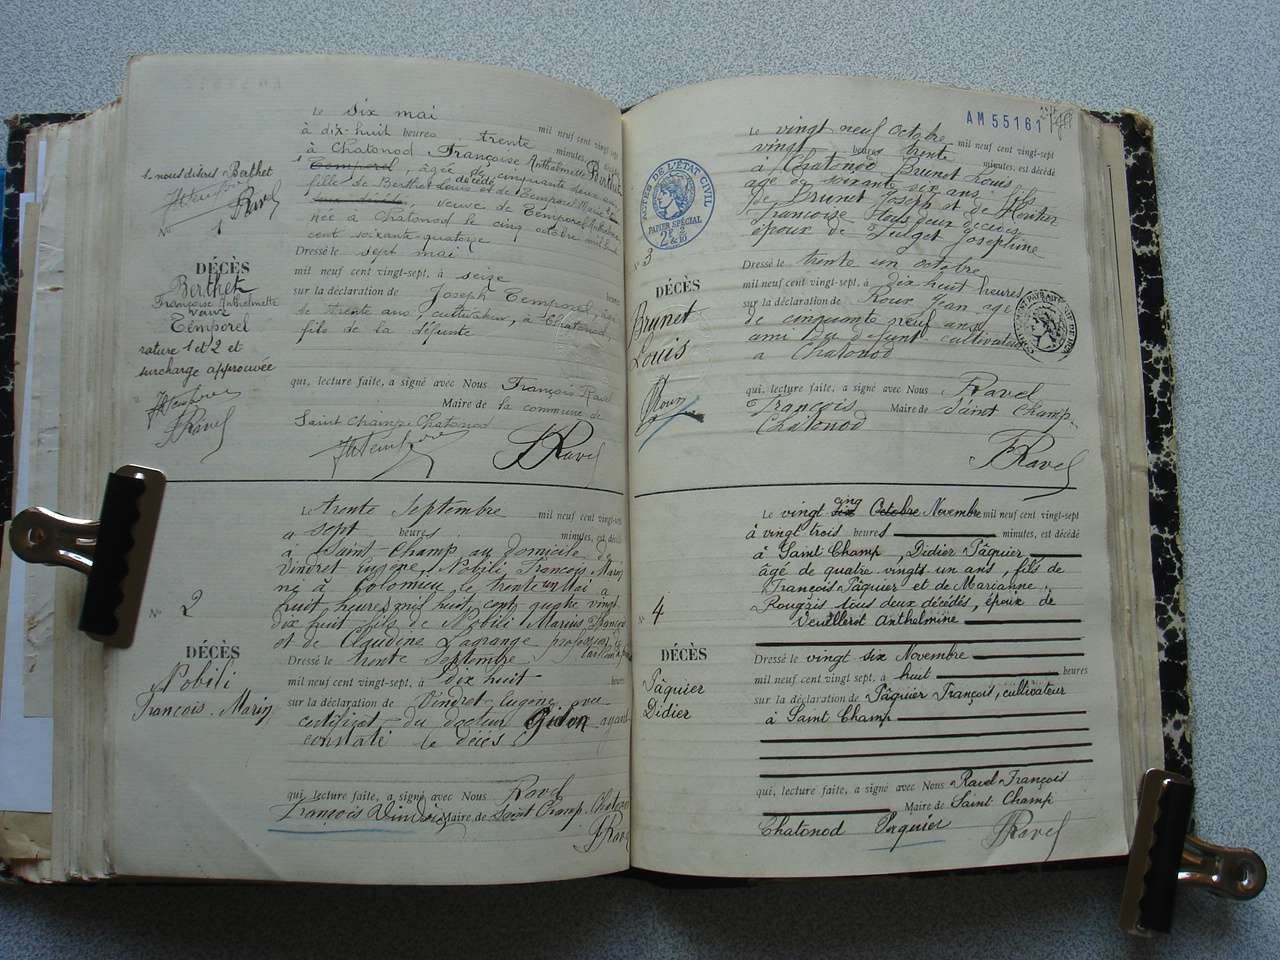 Le six mai mil neuf cent vingt-sept
à dix-huit heures trente minutes,
à Chatonod Françoise Anthelmette Berthet
Temporel, âgée de cinquante deux ans
décédé
fille de Berthet Louis et de Temporel Marie
veuve de Temporel Anthelme
née à Chatonod le cinq octobre mil
cent soixante-quatorze
Dressé le sept mai
mil neuf cent vingt-sept, à seize heures
sur la déclaration de Joseph Temporel, âgé
de trente ans, cultivateur, à Chatonod,
fils de la défunte
qui, lecture faite, a signé avec Nous François Ravel
Maire de la commune de
Saint Champ Chatonod
Ravel
1. nous disons Berthet
Ravel
N° 1
DÉCÈS
Berthet
Françoise Anthelmette
veuve
Temporel
rature 1 et 2 et
surcharge approuvée
Ravel
Le trente Septembre mil neuf cent vingt-sept
à sept heures minutes, est décédé
à Saint-Champ au domicile de
Vindret Eugène, Nobili François, Marin
né à Colomieu le trente un Mai à
huit heures mil huit cent quatre vingt
dix huit fils de Nobili Marius François
et de Claudine Lagrange profession de
Dressé le trente Septembre
mil neuf cent vingt-sept, à dix huit heures
sur la déclaration de Vindret Eugène avec
certificat du docteur Gidon ayant
constaté le décès
qui, lecture faite, a signé avec Nous Ravel
François Maire de Saint Champ Chatonod
Ravel
N° 2
DÉCÈS
Nobili
François. Marin
AM 55161
Le vingt neuf octobre mil neuf cent vingt-sept
vingt heures trente minutes, est décédé
à Chatonod Brunet Louis
âgé de soixante six ans fils
de Brunet Joseph et de
Françoise tous deux décédés
époux de Julget Josephine
ACTES DE L'ÉTAT CIVIL
PAPIER SPÉCIAL
N° 3
DÉCÈS
Brunet
Louis
Dressé le trente un octobre
mil neuf cent vingt-sept, à dix huit heures
sur la déclaration de Roux Jean âgé
de cinquante neuf ans
ami du défunt cultivateur
à Chatonod
qui, lecture faite, a signé avec Nous Ravel
François Maire de Saint Champ
Chatonod
Ravel
cinq
Le vingt six Octobre Novembre mil neuf cent vingt-sept
à vingt trois heures minutes, est décédé
à Saint Champ, Didier Pâquier
âgé de quatre vingts un ans, fils de
François Pâquier et de Marianne
Rougris tous deux décédés, époux de
Veuillerot Anthelmine
N° 4
DÉCÈS
Pâquier
Didier
Dressé le vingt six Novembre
mil neuf cent vingt-sept, à huit heures
sur la déclaration de Pâquier François, cultivateur
à Saint Champ
qui, lecture faite, a signé avec Nous Ravel François
Maire de Saint Champ
Chatonod Paquier Ravel